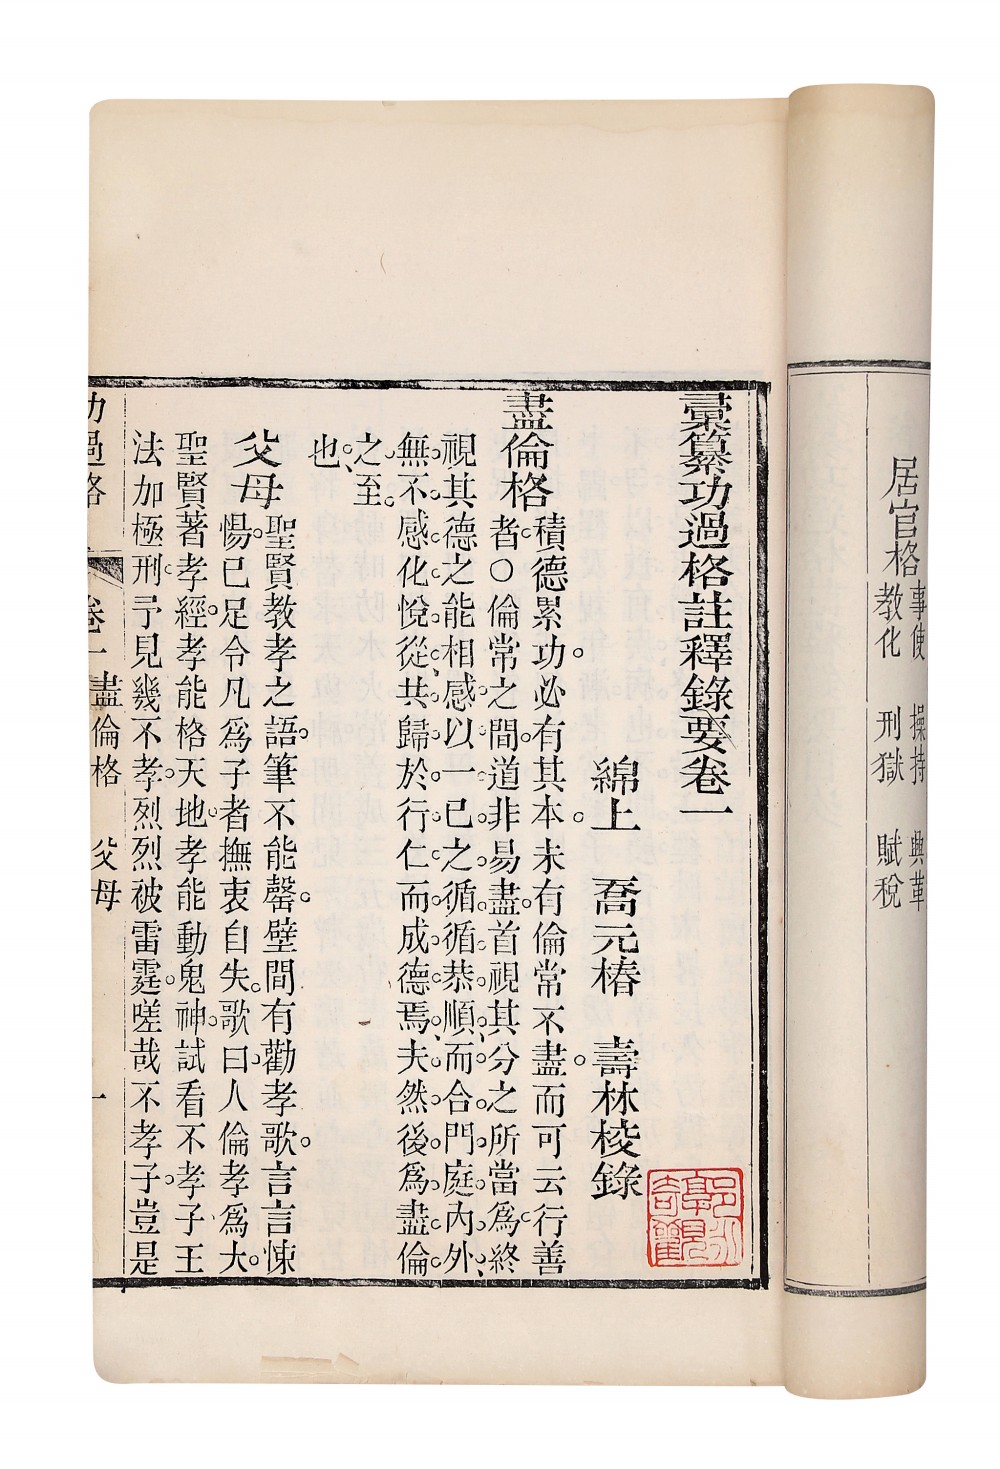 居官格
事使 操持 興革
教化 刑獄 賦稅
彙纂功過格註釋錄要卷一
綿上 喬元椿 壽林校錄
盡倫格
積德累功必有其本未有倫常不盡而可云行善
者○倫常之間道非易盡首視其分之所當為終
視其德之能相感以一己之循循恭順而合門庭內外
無不感化悅從共歸於行仁而成德焉夫然後爲盡倫
之至
也
父母
聖賢教孝之語筆不能罄壁間有勸孝歌言言悚
惕已足令凡爲子者撫衷自失歌曰人倫孝爲大
聖賢著孝經孝能格天地孝能動鬼神試看不孝子王
法加極刑予見幾不孝烈烈被雷霆嗟哉不孝子豈是
功過格 卷一 盡倫格 父母 一